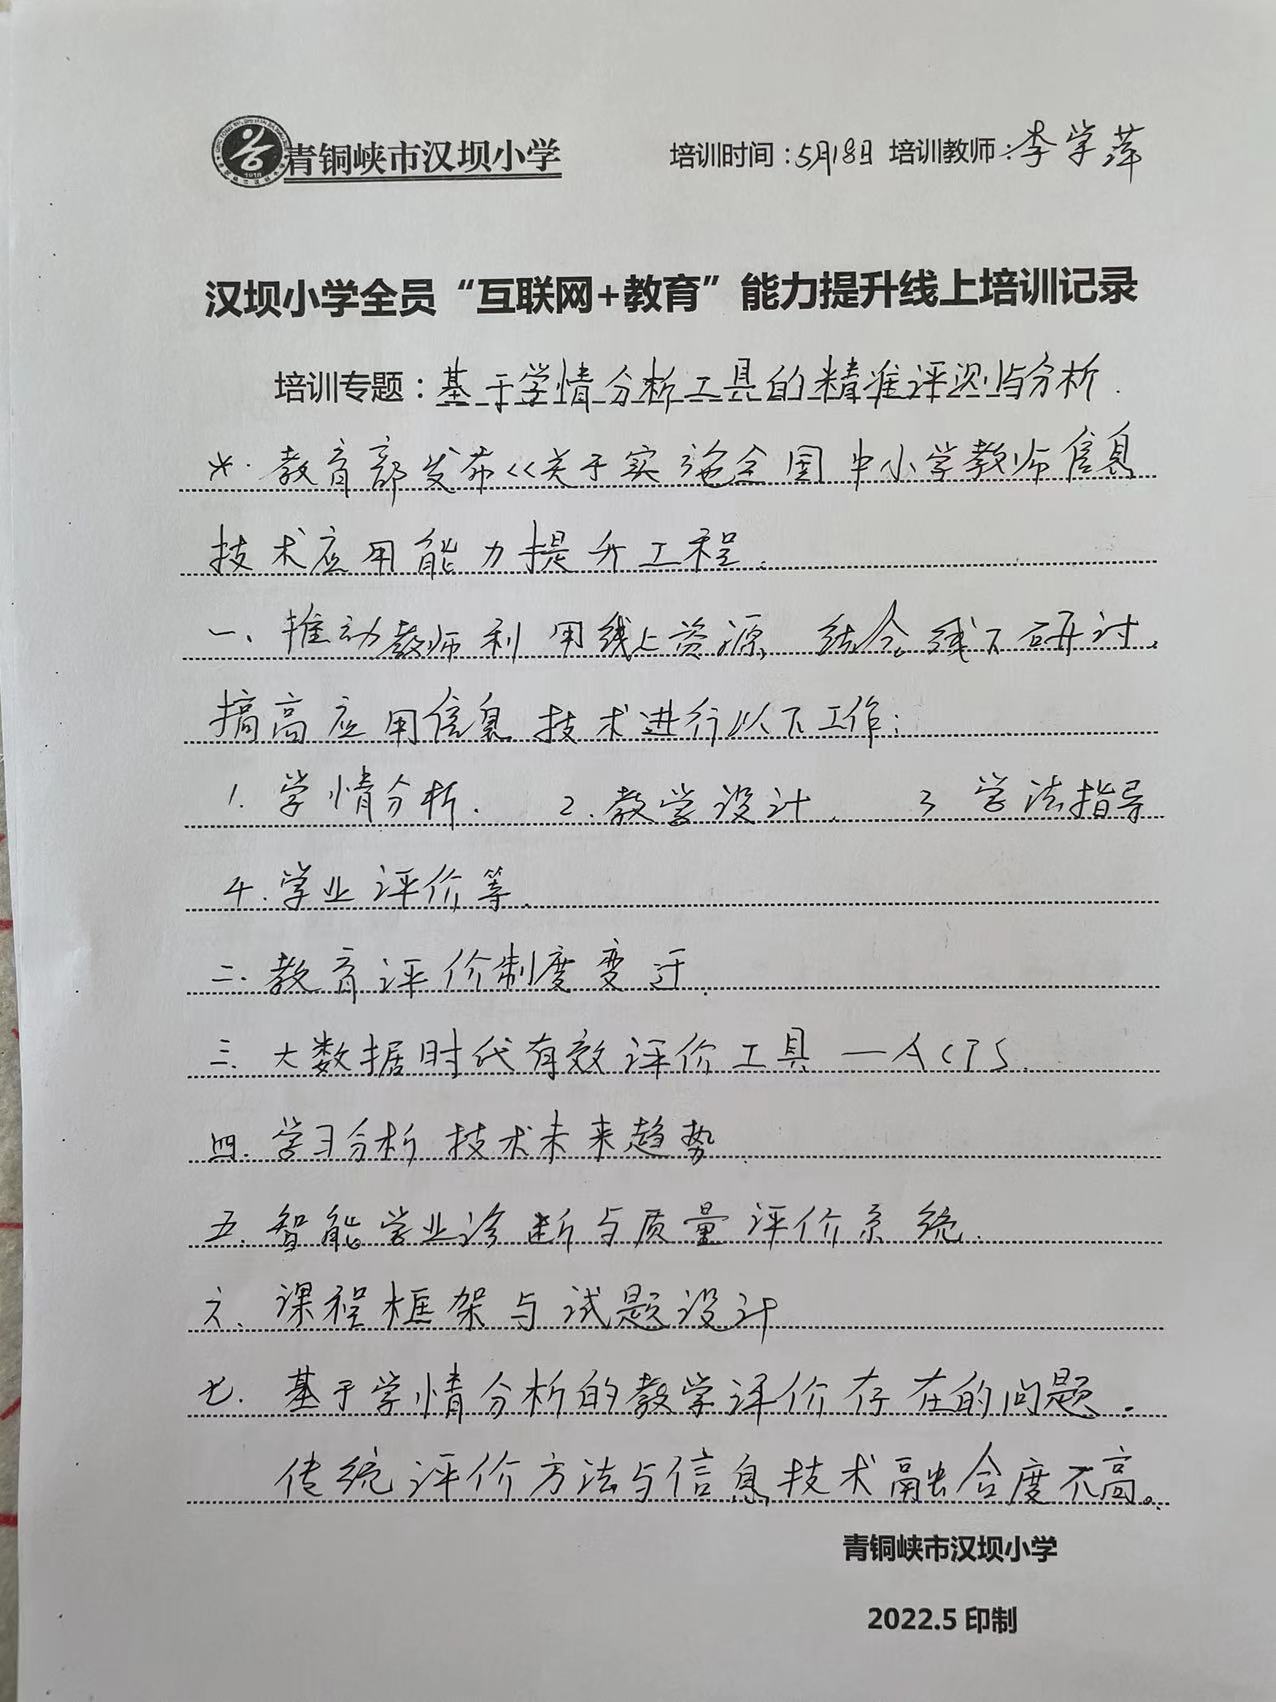 青铜峡市汉坝小学 培训时间：5月18日 培训教师：李学萍
汉坝小学全员“互联网+教育”能力提升线上培训记录
培训专题：基于学情分析工具的精准评测与分析.
*. 教育部发布<<关于实施全国中小学教师信息
技术应用能力提升工程.
一、推动教师利用线上资源，结合线下研讨，
搞高应用信息技术进行以下工作：
1. 学情分析. 2. 教学设计. 3 学法指导
4. 学业评价等.
二. 教育评价制度变迁.
三. 大数据时代有效评价工具 — ACTS.
四. 学习分析技术未来趋势.
五. 智能学业诊断与质量评价系统.
六. 课程框架与试题设计
七. 基于学情分析的教学评价存在的问题.
传统评价方法与信息技术融合度不高。
青铜峡市汉坝小学
2022.5 印制